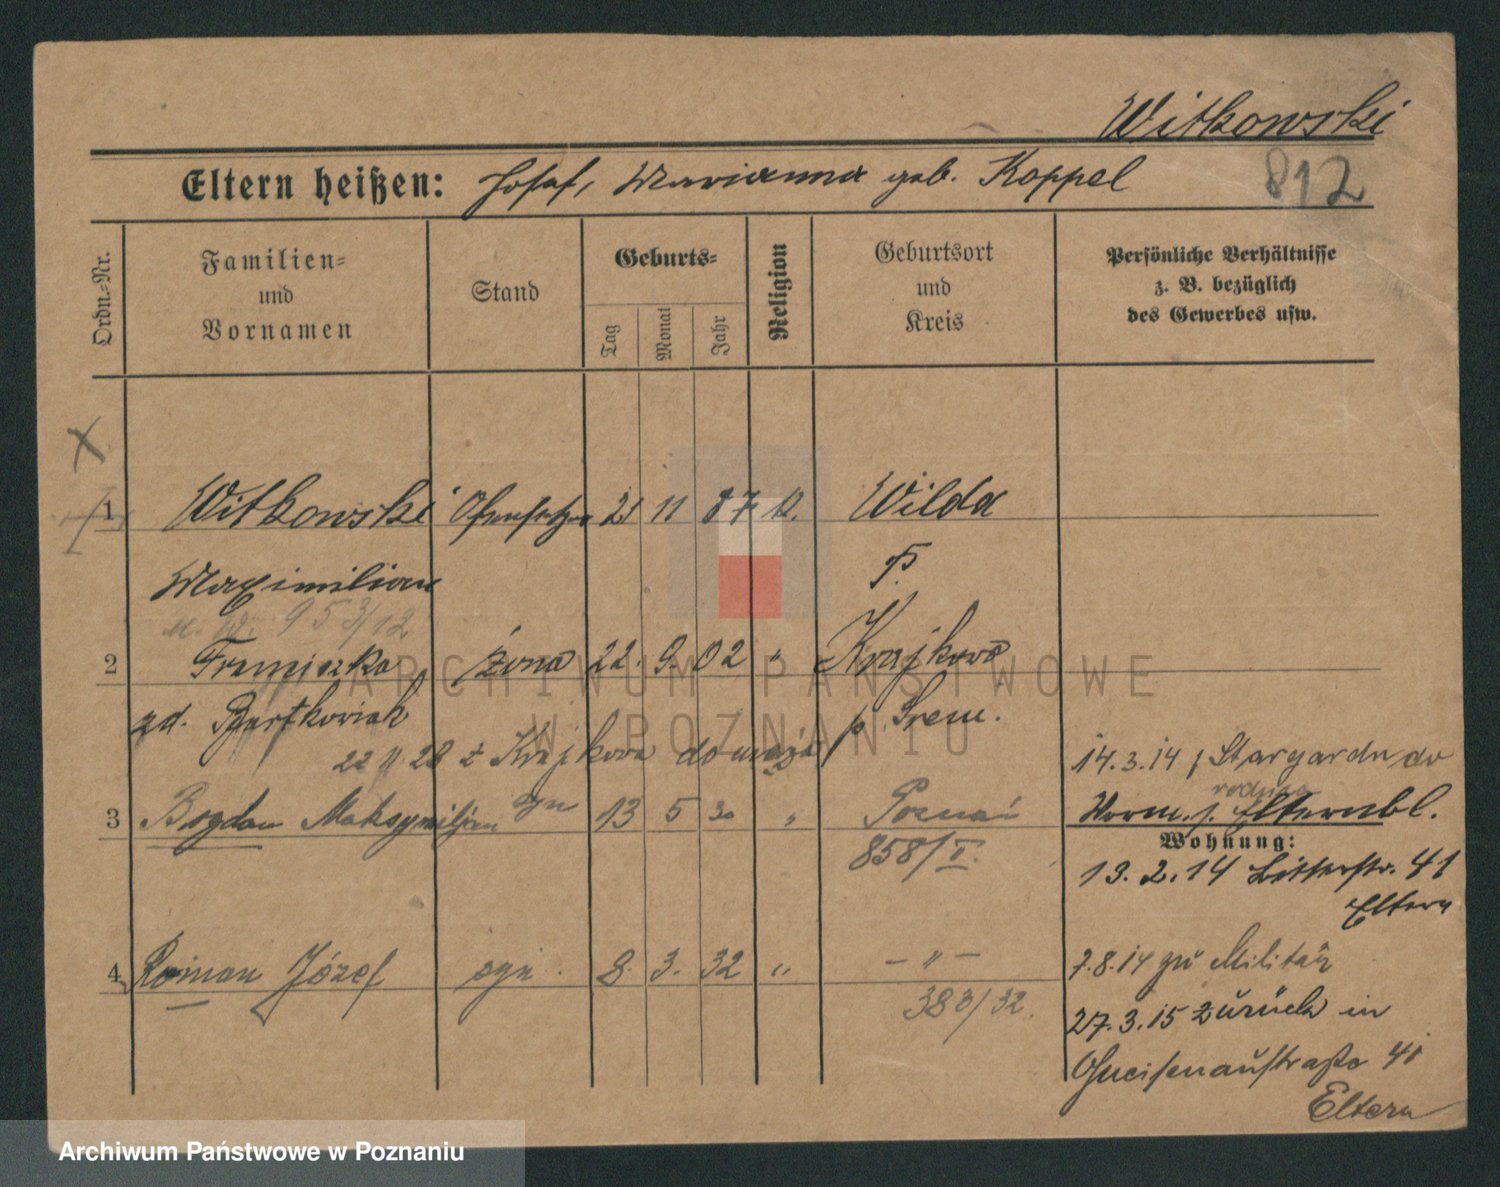 Witkowski
812
Eltern heißen: Josef, Marianna geb. Koppel
Ordn.-Nr.
Familien-
und
Vornamen
Stand
Geburts-
Tag
Monat
Jahr
Religion
Geburtsort
und
Kreis
Persönliche Verhältnisse
z. B. bezüglich
des Gewerbes usw.
1 Witkowski Ofensetzer 21 11 87 k. Wilda
Maximilian P.
953/12
2 Franciszka żona 22. 9. 02 " Krajkowo
zd. Bartkowiak p. Śrem.
22 11 28 z Krajkowa do męża
14.3.14 Stargardu do
rodziców
3 Bogdan Maksymiljan syn 13 5 30 " Poznań
Worm. s. Elternbl.
858/II.
Wohnung:
13.2.14 Bitterstr. 41
Eltern
4 Roman Józef syn 8. 3. 32 " - " -
383/32.
7.8.14 zu Militär
27.3.15 zurück in
Gneisenaustraße 41
Eltern
ARCHIWUM PAŃSTWOWE
W POZNANIU
Archiwum Państwowe w Poznaniu